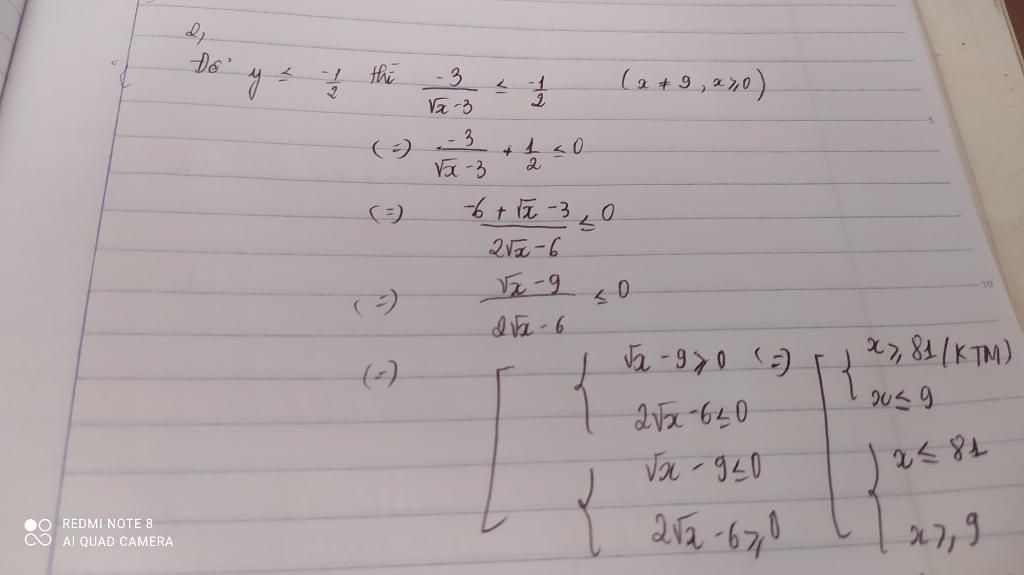 2,
Để y ≤ -1/2 thì -3/(√x-3) ≤ -1/2 (x ≠ 9, x ≥ 0)
(=) -3/(√x-3) + 1/2 ≤ 0
(=) (-6 + √x - 3)/(2√x - 6) ≤ 0
(=) (√x - 9)/(2√x - 6) ≤ 0
(=) [ { √x - 9 ≥ 0 (=) [ { x ≥ 81 (KTM)
2√x - 6 ≤ 0 x ≤ 9
{ √x - 9 ≤ 0 { x ≤ 81
2√x - 6 ≥ 0 x ≥ 9
5
10
REDMI NOTE 8
AI QUAD CAMERA